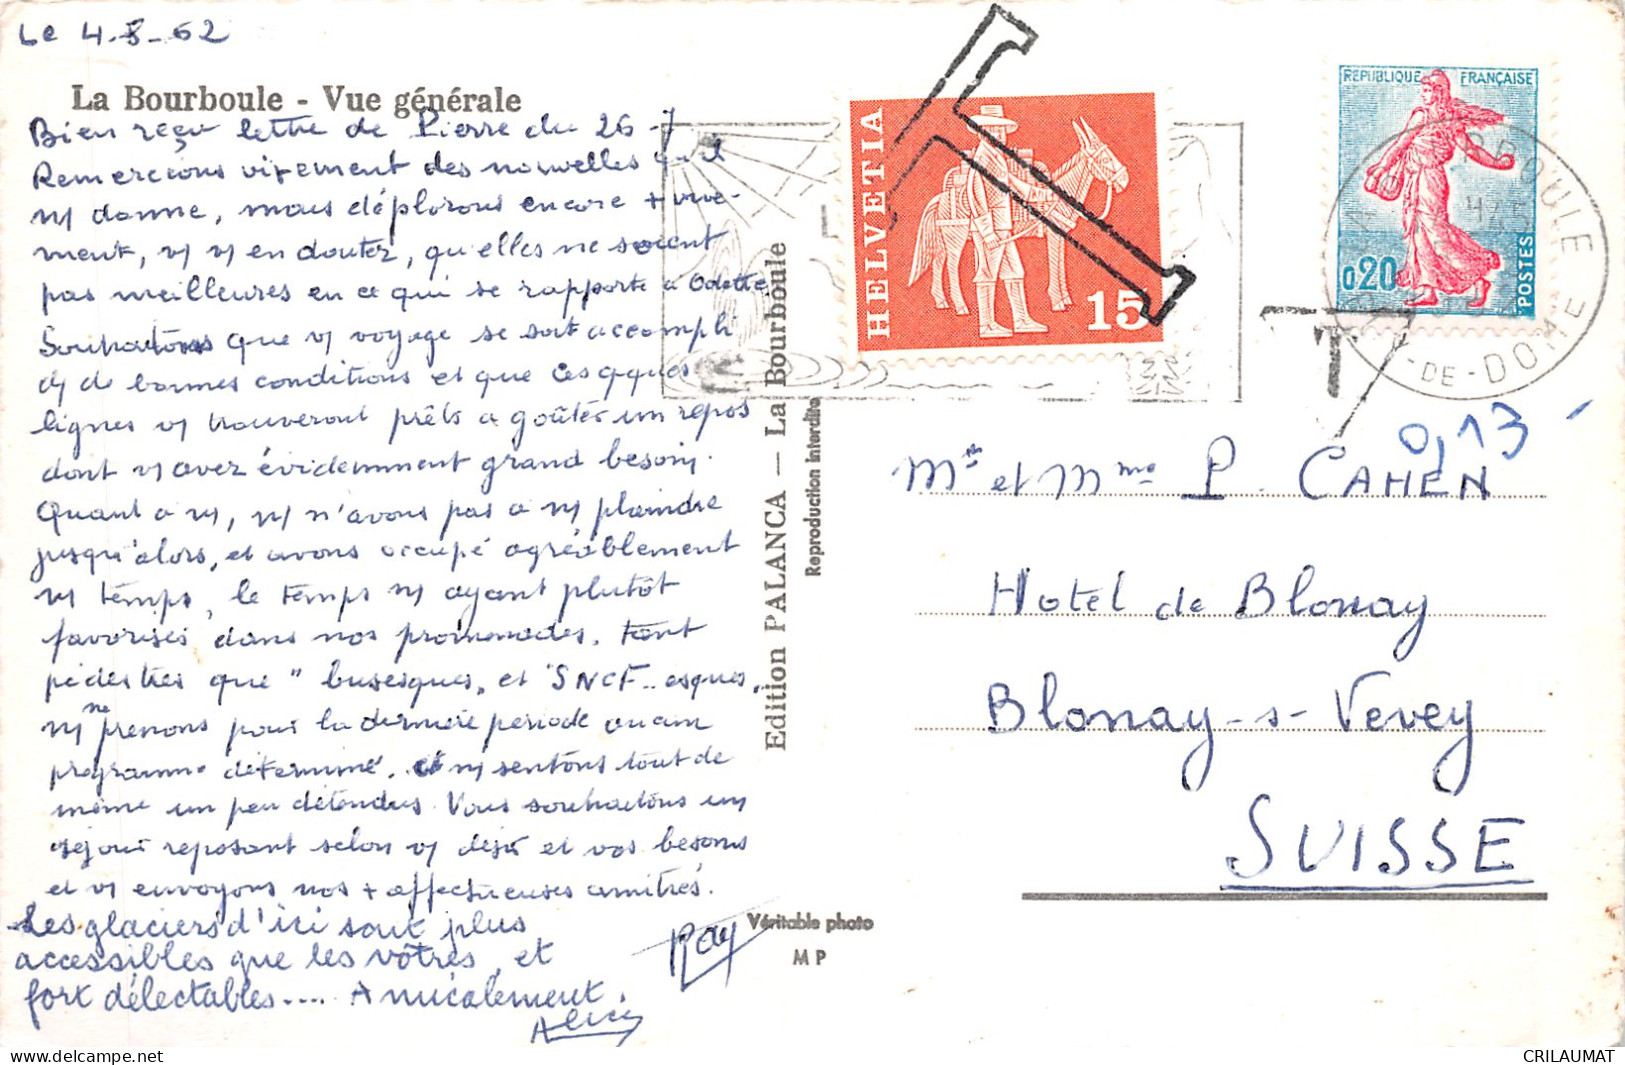 Le 4-8-62
La Bourboule - Vue générale
Bien reçu lettre de Pierre du 26-7
Remercions vivement des nouvelles qu'il
n/ donne, mais déplorons encore + vive-
ment, v/ v/ en doutez, qu'elles ne soient
pas meilleures en ce qui se rapporte à Odette,
Souhaitons que v/ voyage se soit accompli
ds de bonnes conditions et que ces qques
lignes v/ trouveront prêts à goûter un repos
dont v/ avez évidemment grand besoin.
Quant à n/, n/ n'avons pas à n/ plaindre
jusqu'alors, et avons occupé agréablement
n/ temps, le temps n/ ayant plutôt
favorisés dans nos promenades, tant
pédestres que "busesques" et "SNCF.. esques"
n/ ne prenons pour la dernière période aucun
programme déterminé. n/ sentons tout de
même un peu détendus. Vous souhaitons un
séjour reposant selon v/ désir et vos besoins
et v/ envoyons nos + affectueuses amitiés.
Les glaciers d'ici sont plus
accessibles que les vôtres, et
fort délectables.... Amicalement.
Ray
Alice
Edition PALANCA — La Bourboule
Reproduction interdite
Véritable photo
MP
HELVETIA
15
T
REPUBLIQUE FRANÇAISE
0,20
POSTES
BOURBOULE
PUY-DE-DOME
T
0,13
Mr et Mme P. CAHEN
Hotel de Blonay
Blonay-s-Vevey
SUISSE
delcampe.net
CRILAUMAT